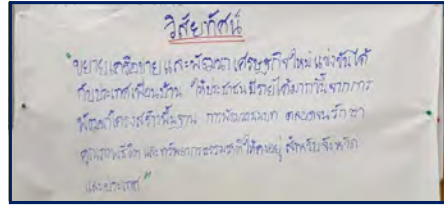 วิสัยทัศน์
"ขยายเครือข่ายและพัฒนาเศรษฐกิจใหม่แข่งขันได้
กับประเทศเพื่อนบ้าน ให้ประชาชนมีรายได้มากขึ้นจากการ
พัฒนาโครงสร้างพื้นฐาน การพัฒนา ตลอดจนรักษา
คุณภาพชีวิต และทรัพยากรธรรมชาติให้คงอยู่ สำหรับจังหวัด
และประเทศ"